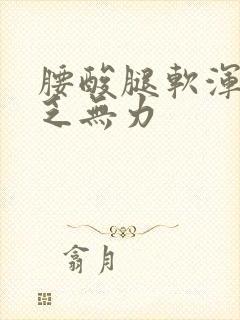 腰酸腿軟渾
乏無力
翕月